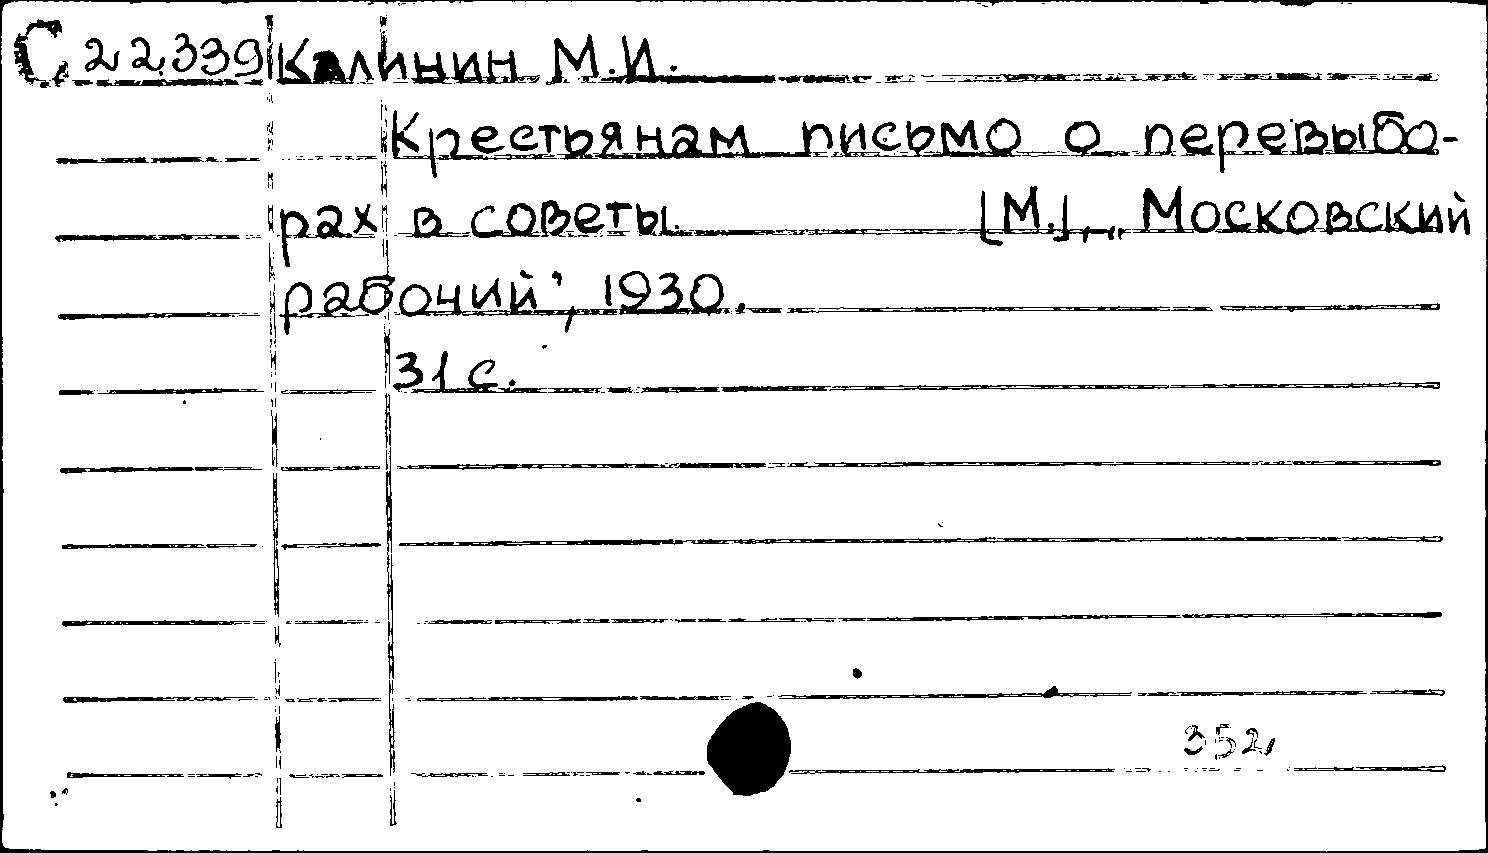 С 22339 Калинин М.И.
Крестьянам письмо о перевыбо-
рах в советы. [М.], „Московский
рабочий", 1930.
31 с.
352